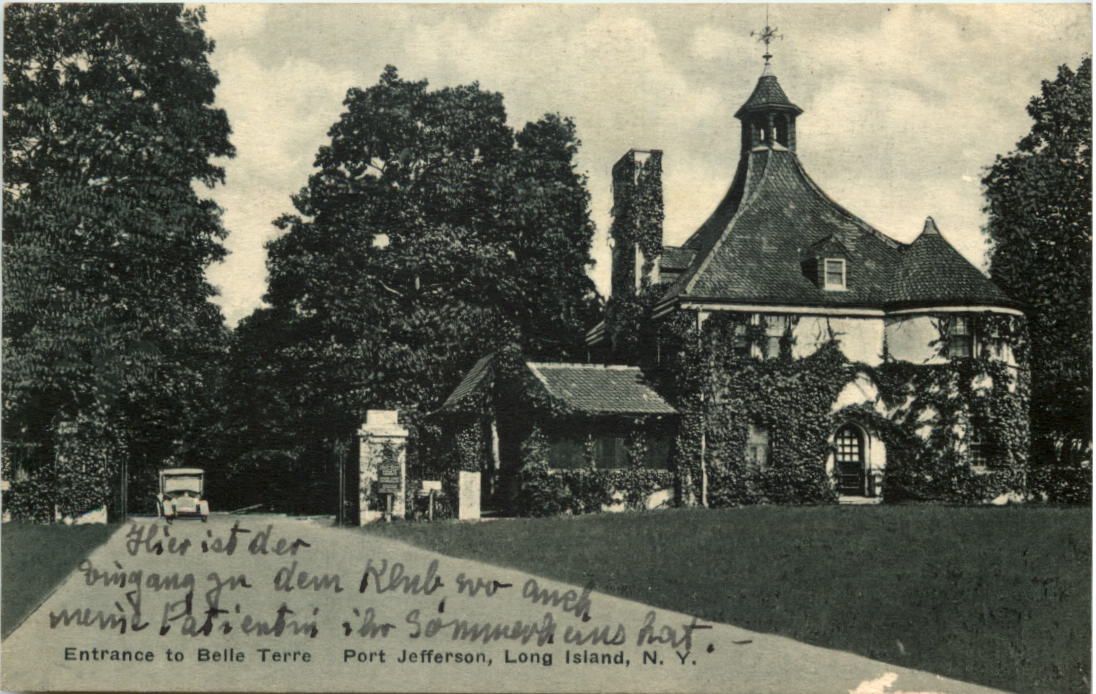 Hier ist der
Eingang zu dem Klub, wo auch
meine Patientin ihr Sommerhaus hat. –
Entrance to Belle Terre Port Jefferson, Long Island, N. Y.